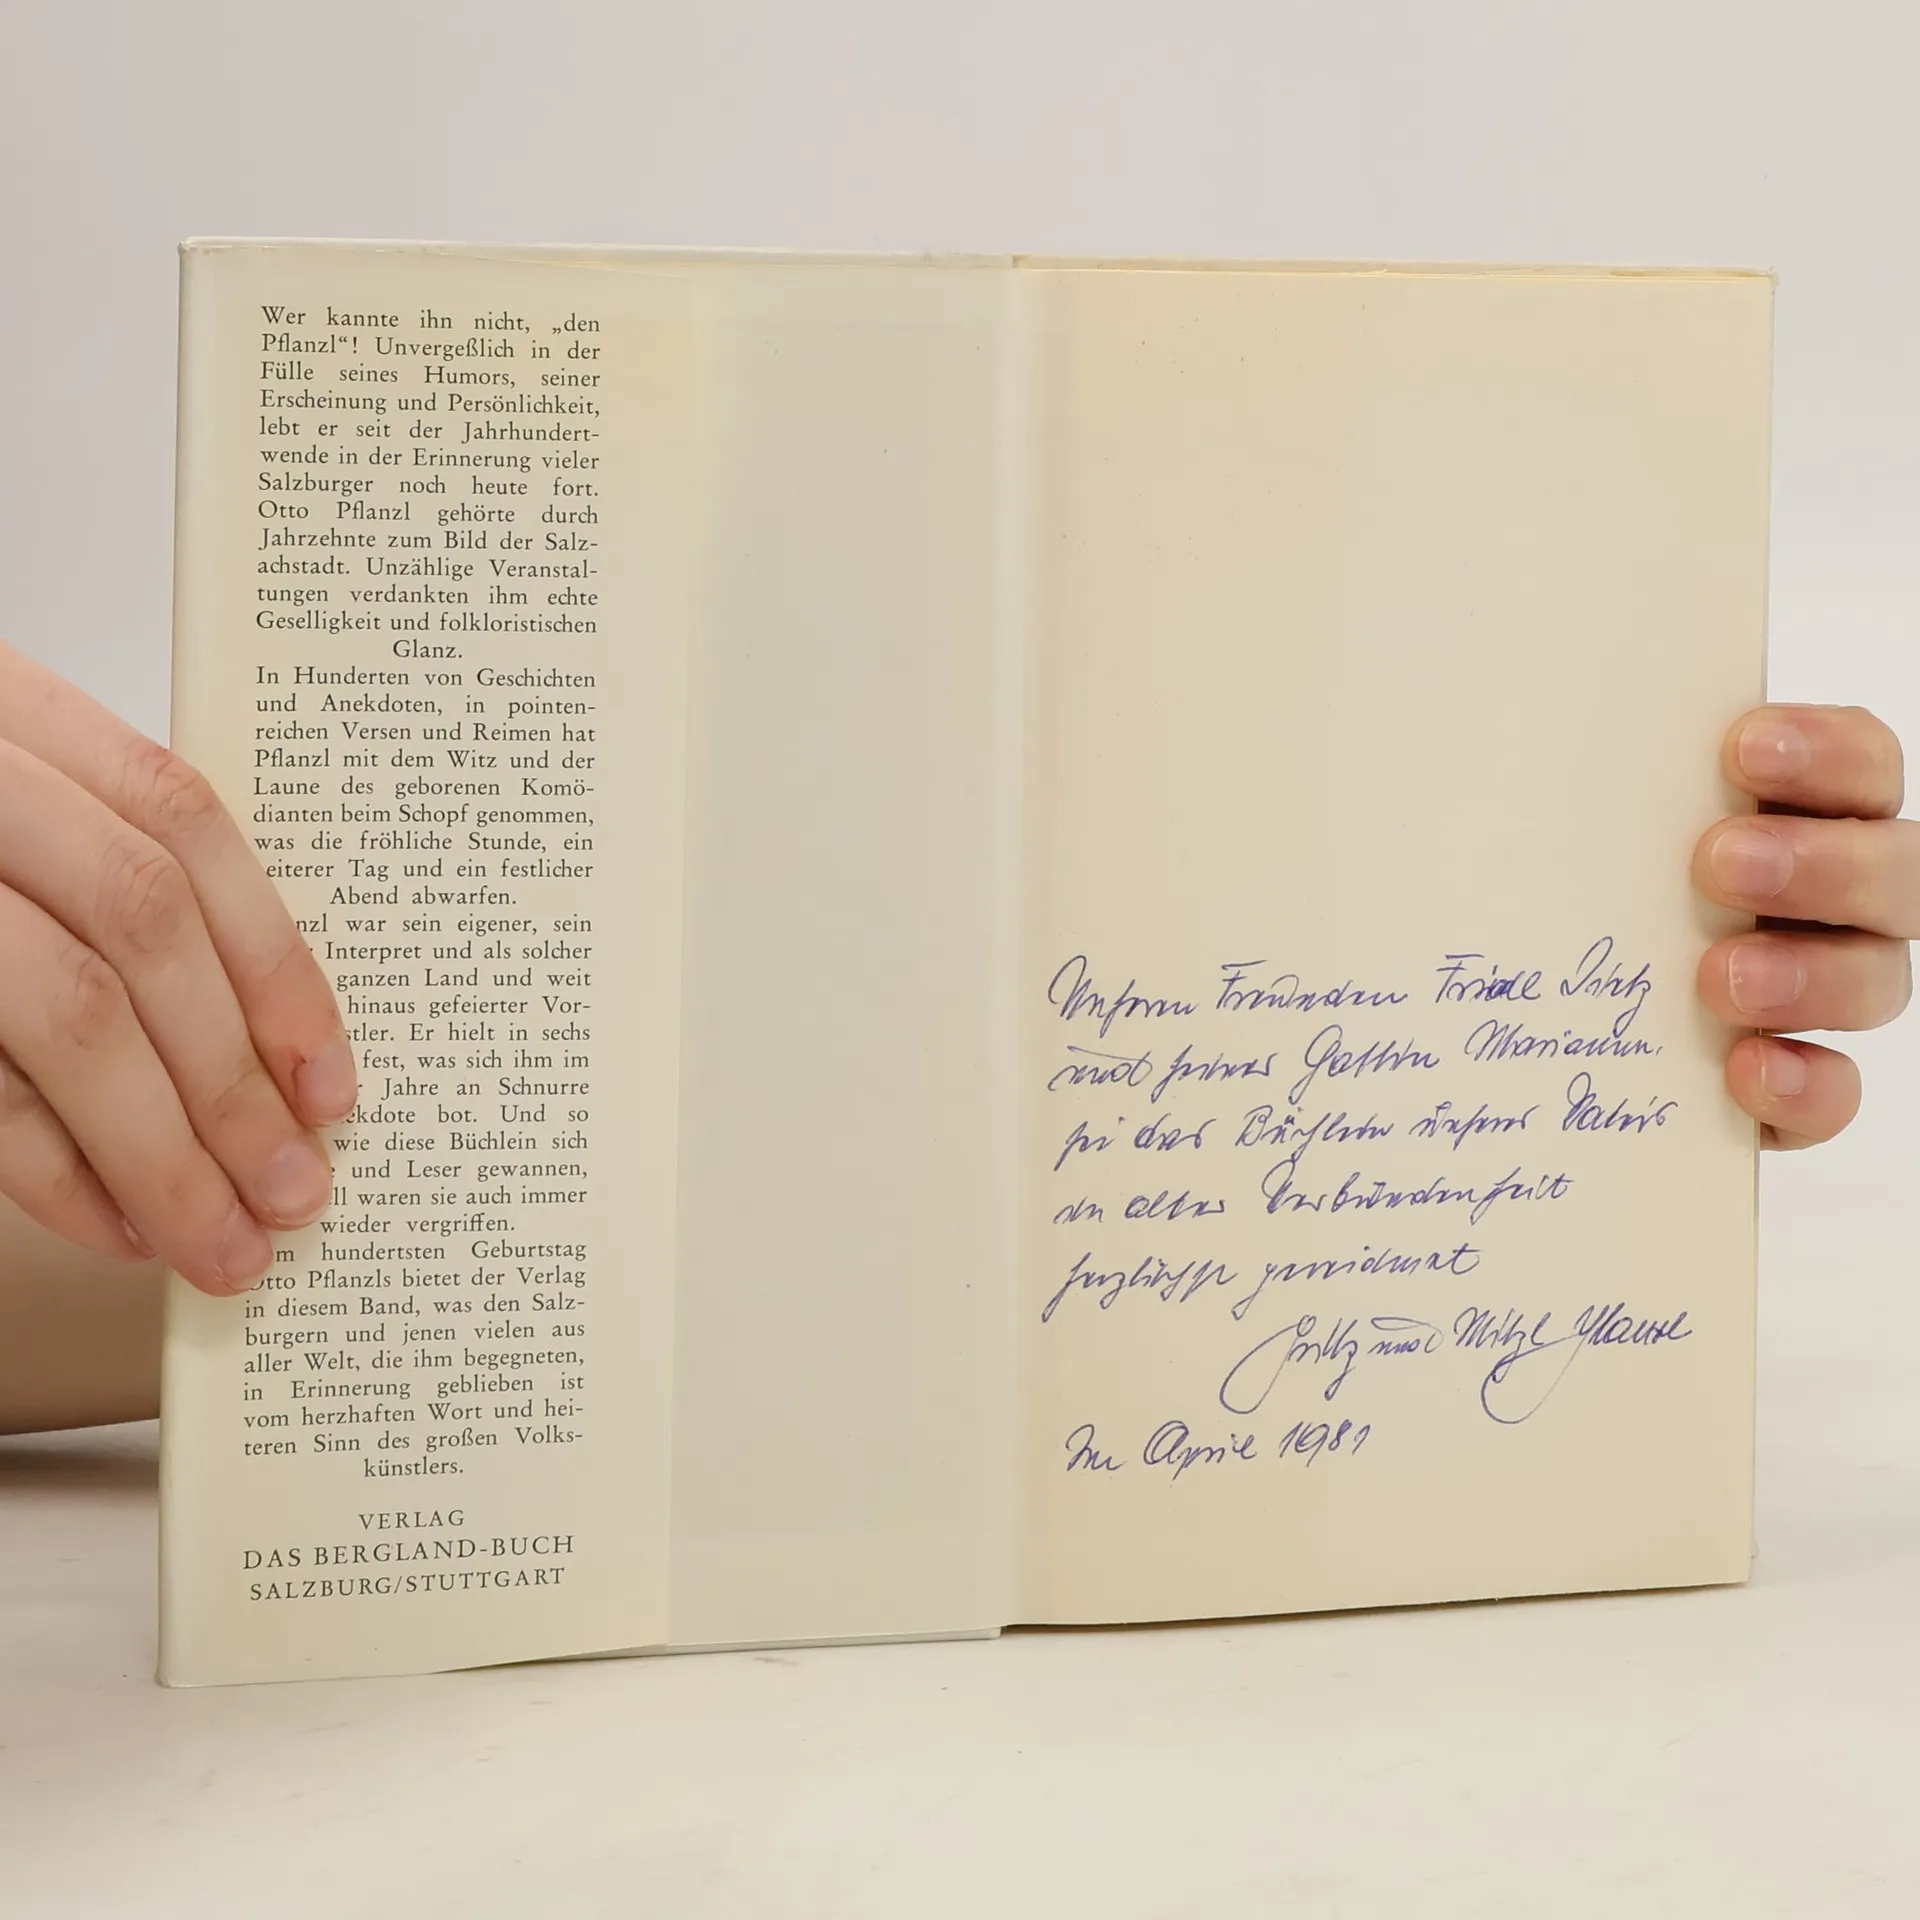 Wer kannte ihn nicht, „den
Pflanzl“! Unvergeßlich in der
Fülle seines Humors, seiner
Erscheinung und Persönlichkeit,
lebt er seit der Jahrhundert-
wende in der Erinnerung vieler
Salzburger noch heute fort.
Otto Pflanzl gehörte durch
Jahrzehnte zum Bild der Salz-
achstadt. Unzählige Veranstal-
tungen verdankten ihm echte
Geselligkeit und folkloristischen
Glanz.
In Hunderten von Geschichten
und Anekdoten, in pointen-
reichen Versen und Reimen hat
Pflanzl mit dem Witz und der
Laune des geborenen Komö-
dianten beim Schopf genommen,
was die fröhliche Stunde, ein
eiterer Tag und ein festlicher
Abend abwarfen.
nzl war sein eigener, sein
Interpret und als solcher
ganzen Land und weit
hinaus gefeierter Vor-
stler. Er hielt in sechs
fest, was sich ihm im
r Jahre an Schnurre
ekdote bot. Und so
wie diese Büchlein sich
e und Leser gewannen,
ll waren sie auch immer
wieder vergriffen.
m hundertsten Geburtstag
Otto Pflanzls bietet der Verlag
in diesem Band, was den Salz-
burgern und jenen vielen aus
aller Welt, die ihm begegneten,
in Erinnerung geblieben ist
vom herzhaften Wort und hei-
teren Sinn des großen Volks-
künstlers.
VERLAG
DAS BERGLAND-BUCH
SALZBURG/STUTTGART
Unseren Freunden Friedl
und seiner Gattin
sei das Büchlein unseres Vaters
in alter Verbundenheit
herzlichst gewidmet
Fritz und Mitzl
Im April 1981